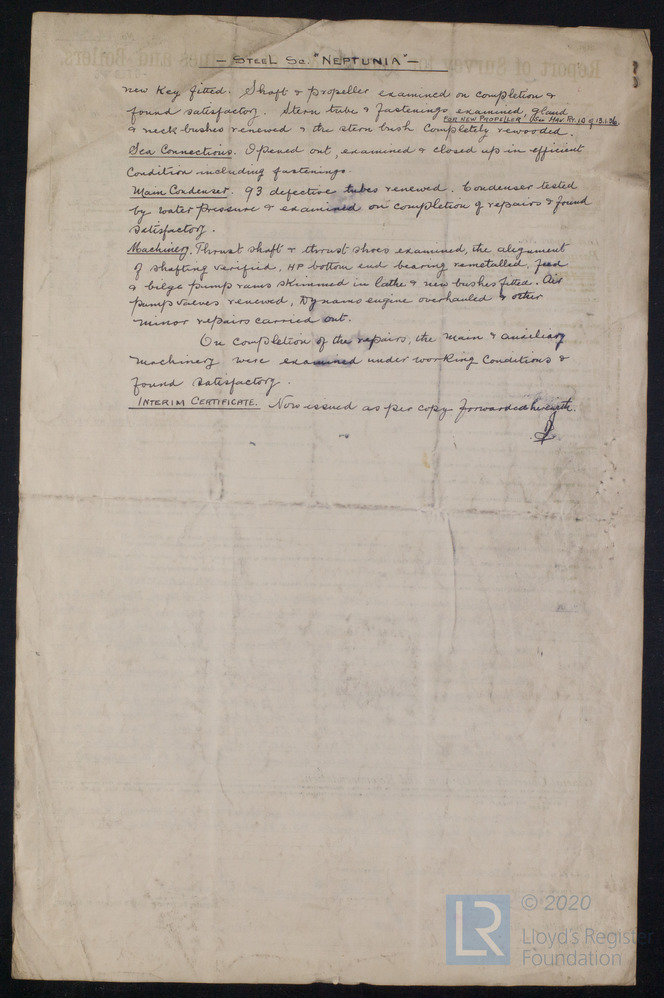 — STEEL Sc. "NEPTUNIA" —
new Key fitted. Shaft & propeller examined on completion &
found satisfactory. Stern tube & fastenings examined, gland
FOR NEW PROPELLER (See Hav Rt. 10 of 13.1.26
& neck bushes renewed & the stern bush completely rewooded.
Sea Connections. Opened out, examined & closed up in efficient
condition including fastenings.
Main Condenser. 93 defective tubes renewed. Condenser tested
by water pressure & examined on completion of repairs & found
satisfactory.
Machinery. Thrust shaft & thrust shoes examined, the alignment
of shafting verified, HP bottom end bearing remetalled, feed
& bilge pump rams skimmed in lathe & new bushes fitted. Air
pump valves renewed, Dynamo engine overhauled & other
minor repairs carried out.
On completion of the repairs, the main & auxiliary
machinery were examined under working conditions &
found satisfactory.
INTERIM CERTIFICATE. Now issued as per copy forwarded herewith.
LR
© 2020
Lloyd's Register
Foundation